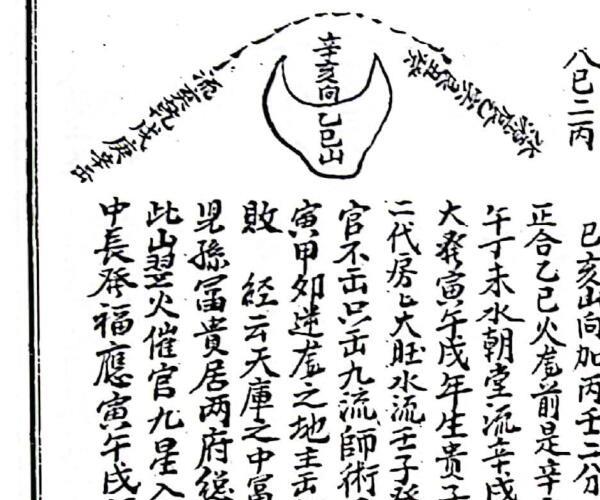 八巳二丙
辛亥向
乙巳山
流
乾戌庚辛出
巳亥山向加丙壬二分
正合乙巳火度前是辛
午丁未水朝堂流辛戌
大發寅午戌年生貴子
二代房房大旺水流壬子癸
官不出只出九流師術
寅甲卯迷度之地主出
敗 經云天庫之中富
兒孫富貴居两府総
此山翌火催官九星入
中長發福應寅午戌